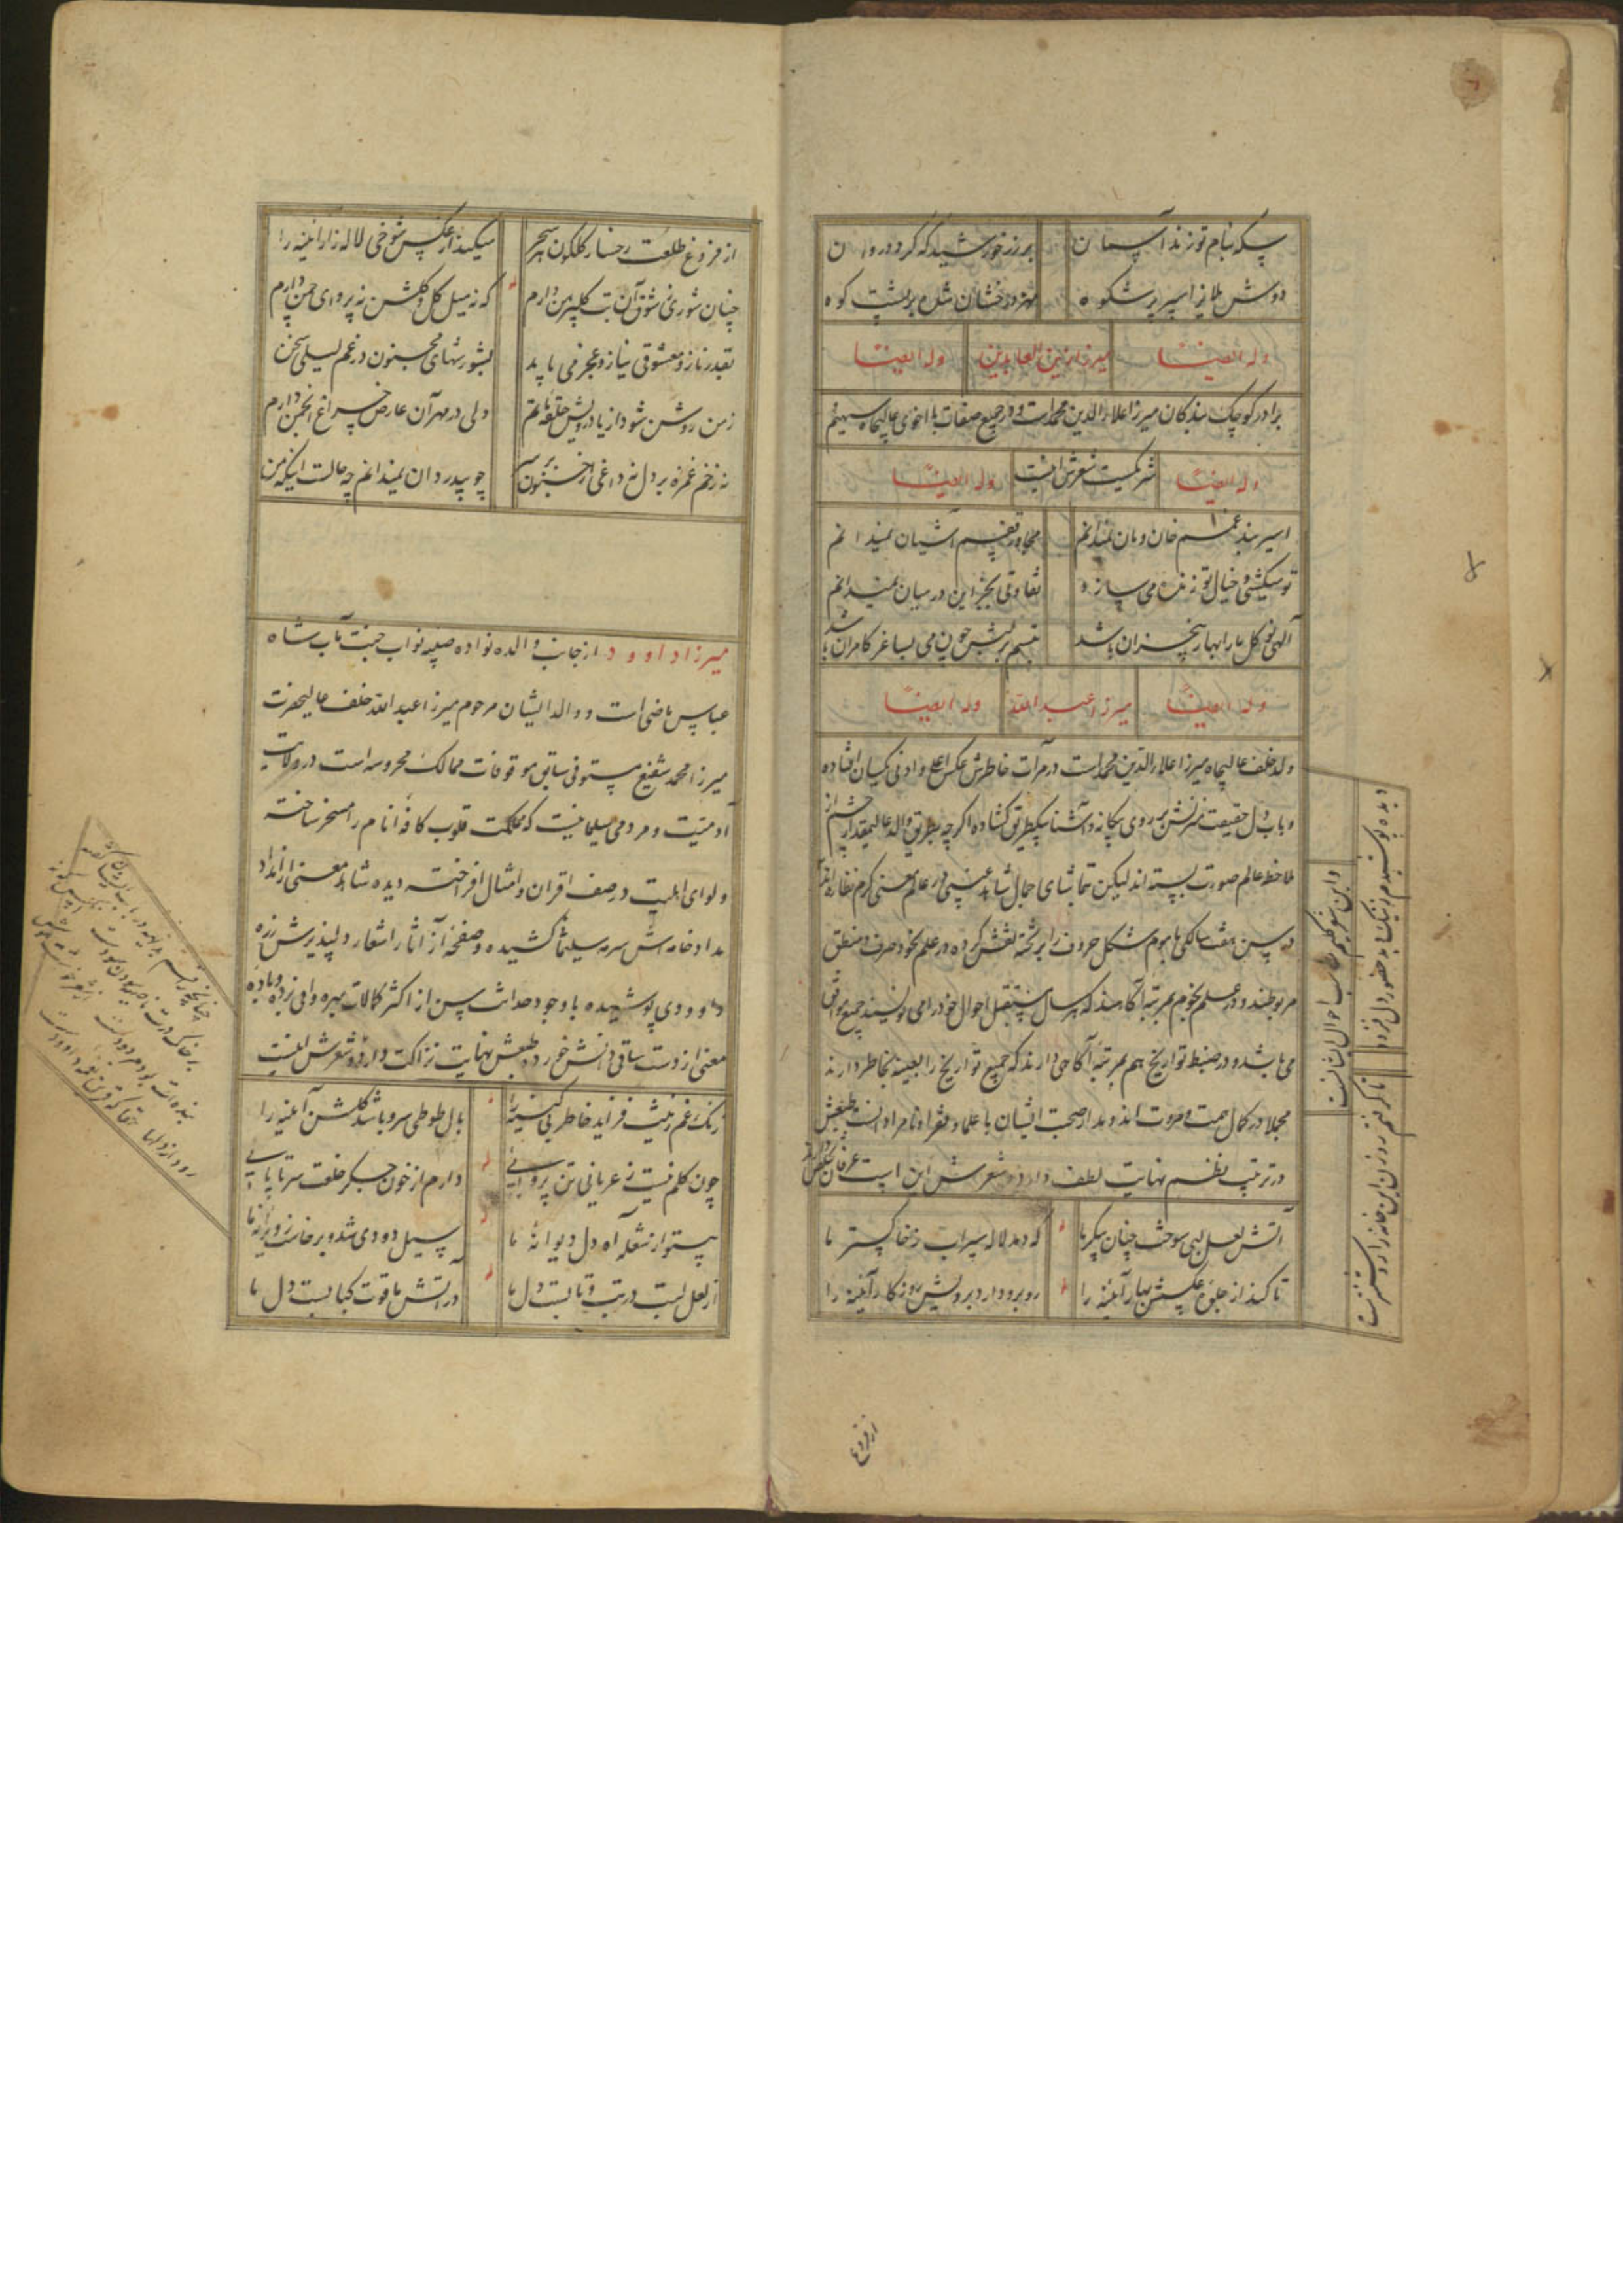 سکه بنام تو زند آسمان
بر زر خورشید که کردد روان
دوش ملایز اسپر پرشکوه
مهر درخشان شده بر پشت کوه
وله ایضاً
میرزا زین العابدین
وله ایضاً
برادر کوچک بندکان میرزا علاء الدین محمد است و در جمیع صفات با اخوی عالیجاه سهیم
وله ایضاً
شریکست شعرش اینست
وله ایضاً
اسیر بند غمم خان و مان نمیدانم
مجاور قفسم آشیان نمیدانم
تو میکشی و خیال تو زنده می سازد
تفاوتی بجز این در میان نمیدانم
آلهی نو کل ما را بهار بیخزان باشد
تبسم بر لبش چون می بساغر کامران باشد
وله ایضاً
میرزا عبد الله
وله ایضاً
ولد خلف عالیجاه میرزا علاء الدین محمد است در مرآت خاطرش عکس اعلی و ادنی یکسان افتاده
و باب دل حقیقت منزلش بر روی بیکانه و آشنا بیکطریق کشاده اکرچه بطریق والد عالیمقدار چشم از
ملاحظه عالم صورت بسته اند لیکن تماشای جمال شاهد غیبی در عالم معنی کرم نظاره اند
در سن هفت سالکی ماهوم شکل حروف را بر تخته نقش کرده در علم نحو و صرف و منطق
مربوطند و در علم نجوم بمرتبه آکاهند که هر سال مستقبل احوال خود را می نویسند جمیع موافق
می باشد و در ضبط تواریخ هم بمرتبه آکاهی دارند که جمیع تواریخ را بعینه بخاطر دارند
مجملا در کمال همت و مروت اند و مدار صحبت ایشان با علما و فقرا و نامرادانست طبعش
در ترتیب نظم نهایت لطف دارد شعرش این است عرفان تخلص دارد
آتش لعل لبی سوخت چنان پیکر ما
که دمد لاله سیراب ز خاکستر ما
تا کند از جلوه عکسش بهار آینه را
روبرو دارد برویش روزکار آینه را
دیده پوشیدم ز نیک و بد حضور دل فزود
تا کرفتم روزن این خانه را روشنتر است
و این شعر کلیم مناسب احوال ایشانست
از فروغ
از فروغ طلعت رخسار کلکون سحر
میکند از عکس شوخی لاله زار آینه را
چنان شوری ز شوق آن بت کلپیرهن دارم
که نه میل کل و کلشن نه پروای چمن دارم
بقدر ناز و معشوقی نیاز و عجز می باید
بشورشهای مجنون در غم لیلی سخن
ز من روشن شود از یاد رویش حلقه ماتم
ولی در مهر آن عارض چراغ انجمن دارم
نه زخم غمزه بر دل نه داغی از جنون بر سر
چو بیدردان نمیدانم چه حالست اینکه من
میرزا داوود از جانب والده نواده صبیه نواب جنت مآب شاه
عباس ماضی است و والد ایشان مرحوم میرزا عبد الله خلف عالیحضرت
میرزا محمد شفیع مستوفی سابق موقوفات ممالک محروسه است در ولایت
آدمیت و مردمی سلیمانیست که مملکت قلوب کافه انام را مسخر ساخته
و لوای اهلیت در صف اقران و امثال افراخته دیده شاهد معنی را از مداد
مداد خامه اش سرمه سلیمانی کشیده و صفحه آز آثار اشعار دلپذیرش زره
داوودی پوشیده با وجود حداثت سن از اکثر کمالات بهره وافی برده و باده
معنی از دست ساقی دانش خورده طبعش نهایت نزاکت دارد و شعرش اینست
زنک غم زینت فزاید خاطر بی کینه را
بال طوطی سرو باشد کلشن آینه را
چون کلم نیست ز عریانی تن پروایی
دارم از خون جکر خلعت سر تا پایی
بیستو از شعله آه دل دیوانه ما
سیل دودی شد و برخاست ز ویرانه ما
از لعل لبت در تب و تابست دل ما
در آتش یاقوت کبابست دل ما